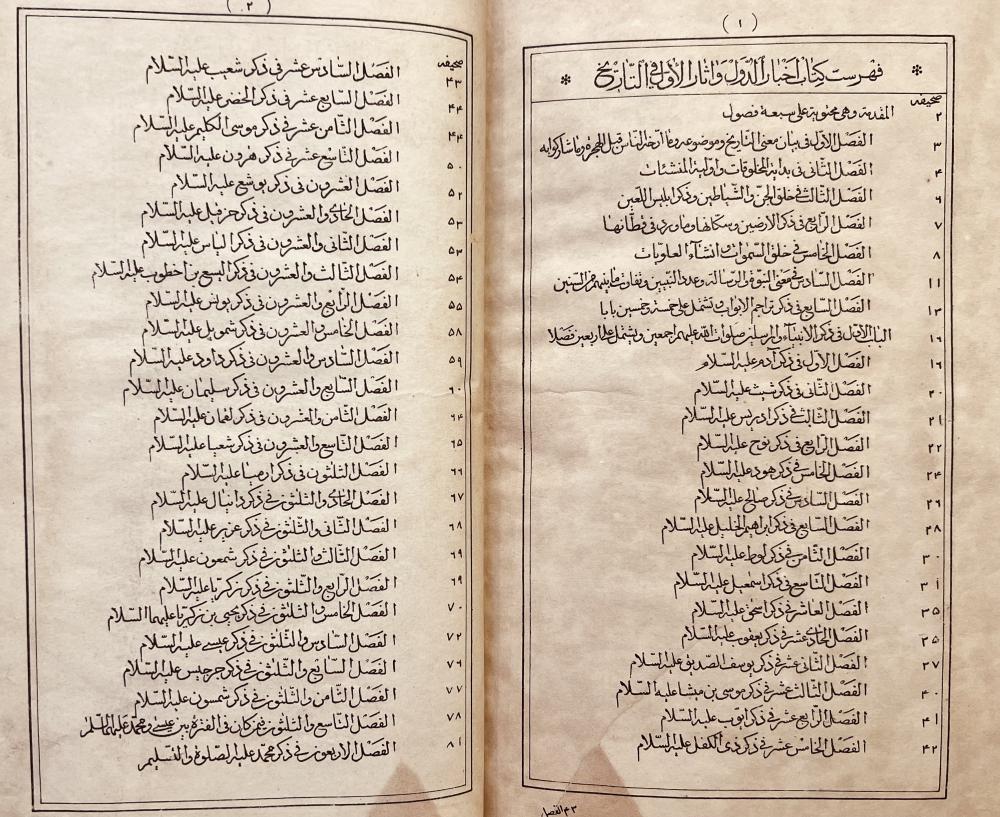 ( ١ )
* فهرست كتاب اخبار الدول واثار الاول فى التاريخ *
صحيفه
٢ المقدمة وهى محتوية على سبعة فصول
٣ الفصل الاول فى بيان معنى التاريخ وموضوعه وما ارخ الناس قبل الهجرة وما شاركوا به
٤ الفصل الثانى فى بداية المخلوقات واولية المنشئات
٦ الفصل الثالث فى خلق الجن والشياطين وذكر ابليس اللعين
٧ الفصل الرابع فى ذكر الارضين وسكانها وما ورد فى قطانها
٨ الفصل الخامس فى خلق السموات وانشاء العلويات
١١ الفصل السادس فى معنى النبوة والرسالة وعدد النبيين وتفاوت ما بينهم من السنين
١٣ الفصل السابع فى ذكر تراجم الابواب وتشمل على خمسة وخمسين بابا
١٦ الباب الاول فى ذكر الانبياء والمرسلين صلوات الله عليهم اجمعين ويشتمل على اربعين فصلا
١٦ الفصل الاول فى ذكر آدم عليه السلام
٢٠ الفصل الثانى فى ذكر شيث عليه السلام
٢١ الفصل الثالث فى ذكر ادريس عليه السلام
٢٢ الفصل الرابع فى ذكر نوح عليه السلام
٢٤ الفصل الخامس فى ذكر هود عليه السلام
٢٦ الفصل السادس فى ذكر صالح عليه السلام
٢٨ الفصل السابع فى ذكر ابراهيم الخليل عليه السلام
٣٠ الفصل الثامن فى ذكر لوط عليه السلام
٣١ الفصل التاسع فى ذكر اسمعيل عليه السلام
٣٥ الفصل العاشر فى ذكر اسحق عليه السلام
٣٥ الفصل الحادى عشر فى ذكر يعقوب عليه السلام
٣٧ الفصل الثانى عشر فى ذكر يوسف الصديق عليه السلام
٤٠ الفصل الثالث عشر فى ذكر موسى بن ميشا عليه السلام
٤١ الفصل الرابع عشر فى ذكر ايوب عليه السلام
٤٢ الفصل الخامس عشر فى ذكر ذى الكفل عليه السلام
٤٣ الفصل
( ٢ )
صحيفه
٤٣ الفصل السادس عشر فى ذكر شعيب عليه السلام
٤٤ الفصل السابع عشر فى ذكر الخضر عليه السلام
٤٤ الفصل الثامن عشر فى ذكر موسى الكليم عليه السلام
٥٠ الفصل التاسع عشر فى ذكر هرون عليه السلام
٥٢ الفصل العشرون فى ذكر يوشع عليه السلام
٥٣ الفصل الحادى والعشرون فى ذكر حزقيل عليه السلام
٥٣ الفصل الثانى والعشرون فى ذكر الياس عليه السلام
٥٤ الفصل الثالث والعشرون فى ذكر اليسع بن اخطوب عليه السلام
٥٥ الفصل الرابع والعشرون فى ذكر يونس عليه السلام
٥٨ الفصل الخامس والعشرون فى ذكر شمويل عليه السلام
٥٩ الفصل السادس والعشرون فى ذكر داود عليه السلام
٦٠ الفصل السابع والعشرون فى ذكر سليمان عليه السلام
٦٤ الفصل الثامن والعشرون فى ذكر لقمان عليه السلام
٦٥ الفصل التاسع والعشرون فى ذكر شعيا عليه السلام
٦٦ الفصل الثلثون فى ذكر ارميا عليه السلام
٦٧ الفصل الحادى والثلثون فى ذكر دانيال عليه السلام
٦٨ الفصل الثانى والثلثون فى ذكر عزير عليه السلام
٦٩ الفصل الثالث والثلثون فى ذكر شمعون عليه السلام
٦٩ الفصل الرابع والثلثون فى ذكر زكريا عليه السلام
٧٠ الفصل الخامس والثلثون فى ذكر يحيى بن زكريا عليهما السلام
٧٢ الفصل السادس والثلثون فى ذكر عيسى عليه السلام
٧٦ الفصل السابع والثلثون فى ذكر جرجيس عليه السلام
٧٧ الفصل الثامن والثلثون فى ذكر شمسون عليه السلام
٧٨ الفصل التاسع والثلثون فيمن كان فى الفترة بين عيسى ومحمد عليهما السلام
٨١ الفصل الاربعون فى ذكر محمد عليه الصلوة والتسليم